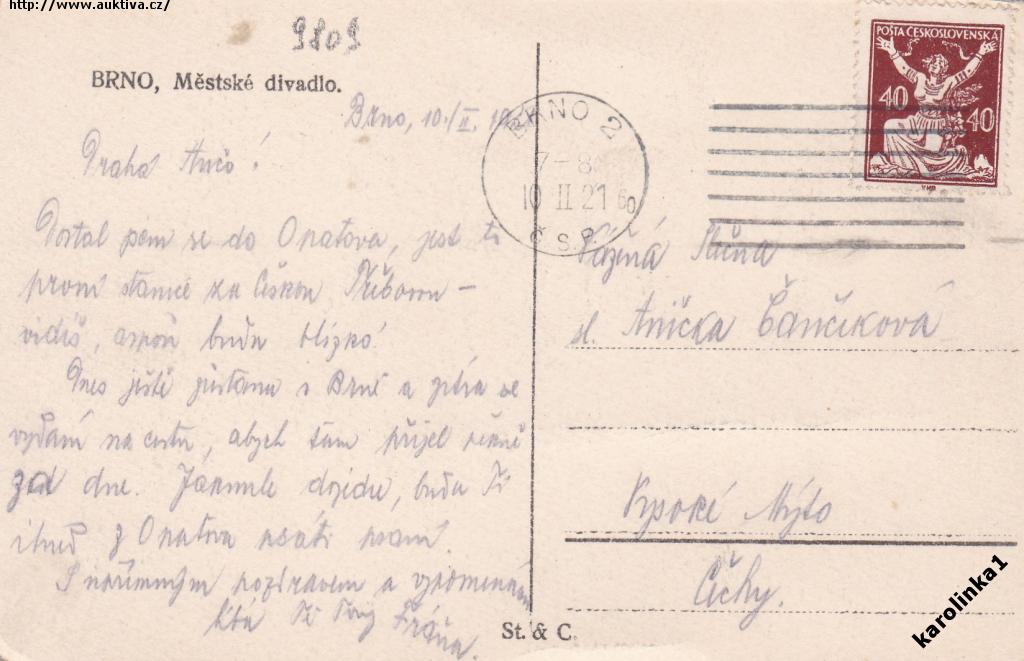 http://www.auktiva.cz/
9809
BRNO, Městské divadlo.
POŠTA ČESKOSLOVENSKÁ
40 40
BRNO 2
7-8
10 II 21
Č.S.P.
Brno, 10./II.
Drahá Ančo!
Dostal jsem se do Opatova, jest to
první stanice za Českou Třebovou –
vidíš, aspoň budu blízko.
Dnes ještě zůstanu v Brně a zítra se
vydám na cestu, abych tam přijel
za dne. Jakmile dojedu, budu Ti
ihned z Opatova psáti psaní.
S upřímným pozdravem a vzpomínkou
Tvůj Fráňa.
Vážená Slečna
sl. Anička Čančíková
Vysoké Mýto
Čechy.
St. & C.
karolinka1